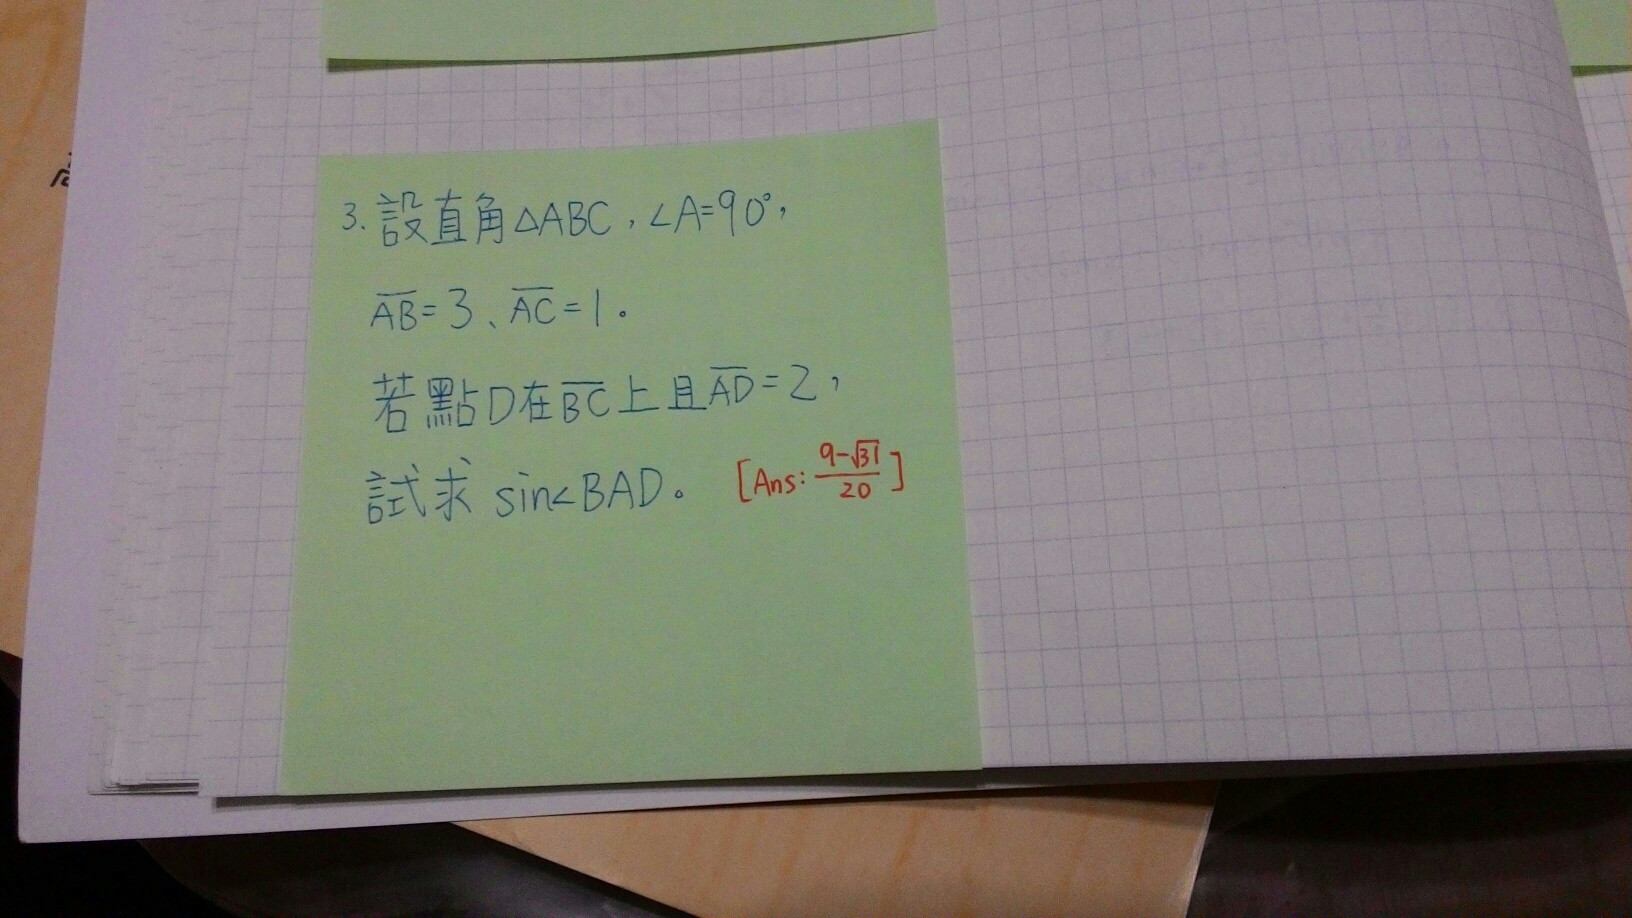 3. 設直角△ABC，∠A=90°，
AB=3、AC=1。
若點D在BC上且AD=2，
試求 sin∠BAD。 [Ans: 9-√31/20]